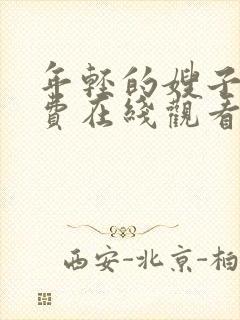 年轻的嫂子
費在綫觀看
西安-北京-柏